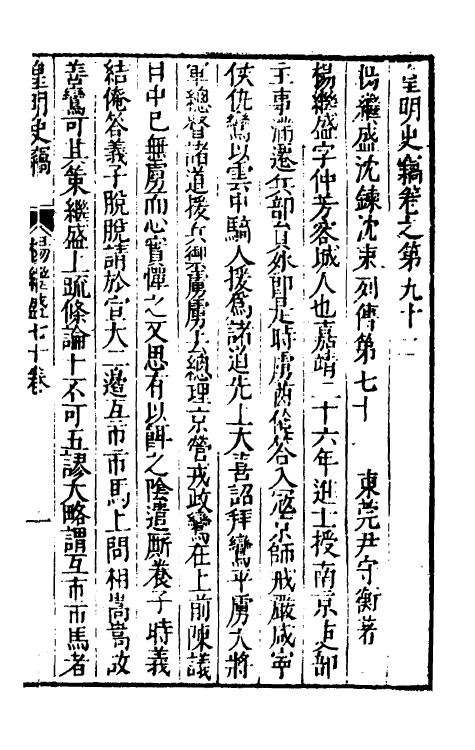 皇明史竊卷之第九十二
楊繼盛沈鍊沈束列傳第七十　東莞尹守衡著
楊繼盛字仲芳容城人也嘉靖二十六年進士授南京吏部
主事滿遷兵部員外郎是時虜酋俺答入寇京師戒嚴咸寧
侯仇鸞以雲中騎入援為諸道先上大喜詔拜鸞平虜大將
軍總督諸道援兵禦虜虜去總理京營戎政鸞在上前陳議
目中已無虜而心實憚之又思有以餌之陰遣厮養子時義
結俺答義子脫脫請於宣大二邊互市市馬上問相嵩嵩故
善鸞可其策繼盛上疏條論十不可五謬大略謂互市市馬者
皇明史竊
楊繼盛七十卷
一